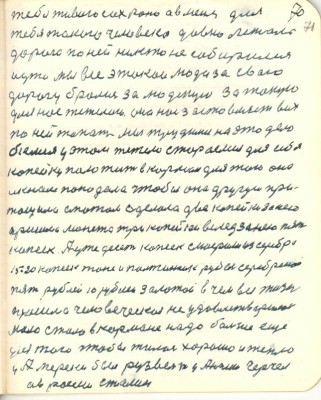 70
71
тебя живого сохрано а вмени для
тебя такого человека давно лежала
дорога по ней никто не собирался
идти мы все эта кое люди за свою
дорогу бралися за людскую за такую
для нее тяжелою она нас заставляет всех
по ней топать мы трудимся на это дело
беремся у этом тяжело стараемся для себя
копейку положить в карман для того она
к нам попадала чтобы она другую при
тащила с потом сделала две копейки за него
пришли монета три копейки вслед за нею пять
копеек А уже десять копеек смотрится серебро
15-20 копеек тоже и полтинник рубль серебреной
пять рублей 10 рублей золотой в чем все жизнь
прошла человеческая не удовлетворила
мало стало в кармане надо больше еще
для того чтобы жилось хорошо и тепло
у Америки был Рузвельт у Англии Черчел
а в росеи сталин